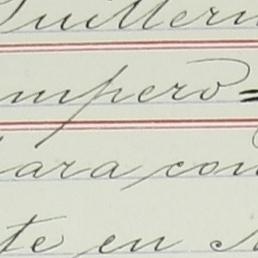 Guillerm
mpero=
ara con
te en